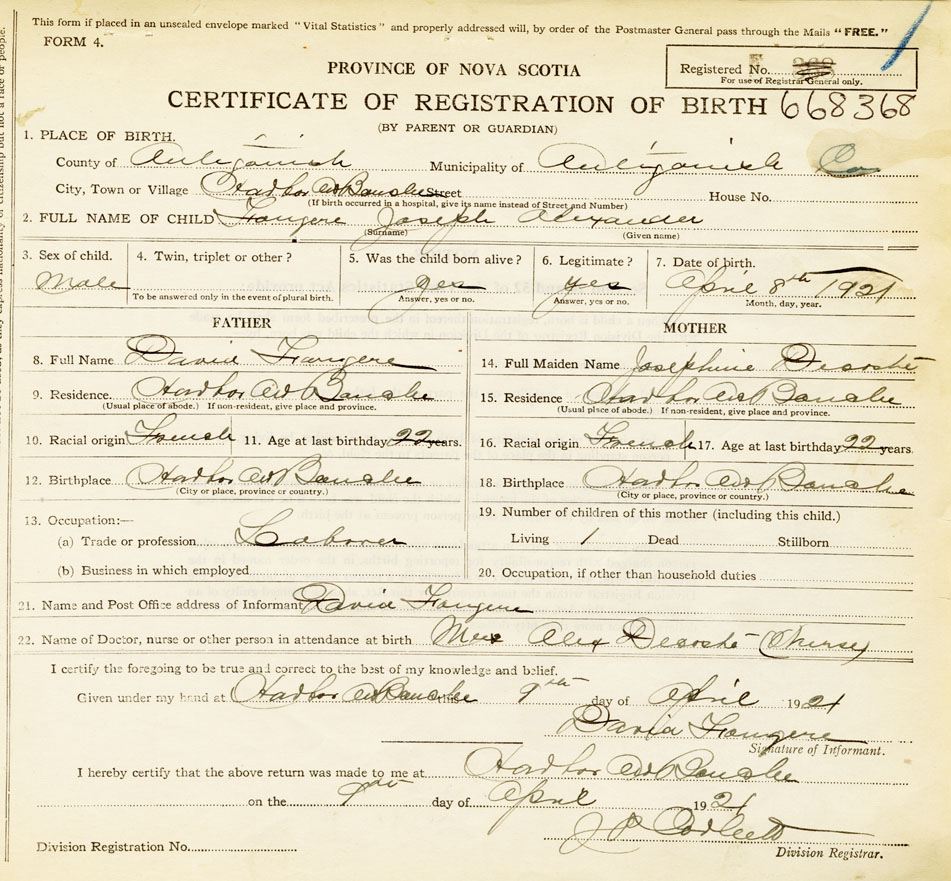 This form if placed in an unsealed envelope marked "Vital Statistics" and properly addressed will, by order of the Postmaster General pass through the Mails "FREE."
FORM 4.
Registered No.
For use of Registrar General only.
PROVINCE OF NOVA SCOTIA
CERTIFICATE OF REGISTRATION OF BIRTH 668368
(BY PARENT OR GUARDIAN)
1. PLACE OF BIRTH.
County of Antigonish Municipality of Antigonish Co
City, Town or Village Harbor Au Bouche Street House No.
(If birth occurred in a hospital, give its name instead of Street and Number)
2. FULL NAME OF CHILD Fougere Joseph Alexander
(Surname) (Given name)
3. Sex of child. 4. Twin, triplet or other? 5. Was the child born alive? 6. Legitimate? 7. Date of birth.
Male yes yes April 8th 1921
To be answered only in the event of plural birth. Answer, yes or no. Answer, yes or no. Month, day, year.
FATHER
8. Full Name David Fougere
9. Residence. Harbor Au Bouche
(Usual place of abode.) If non-resident, give place and province.
10. Racial origin French 11. Age at last birthday 22 years.
12. Birthplace Harbor Au Bouche
(City or place, province or country.)
13. Occupation:—
(a) Trade or profession Laborer
(b) Business in which employed
MOTHER
14. Full Maiden Name Josephine Decoste
15. Residence Harbor Au Bouche
(Usual place of abode.) If non-resident, give place and province.
16. Racial origin French 17. Age at last birthday 22 years.
18. Birthplace Harbor Au Bouche
(City or place, province or country.)
19. Number of children of this mother (including this child.)
Living 1 Dead Stillborn
20. Occupation, if other than household duties
21. Name and Post Office address of Informant David Fougere
22. Name of Doctor, nurse or other person in attendance at birth Mrs Alex Decoste (Nurse)
I certify the foregoing to be true and correct to the best of my knowledge and belief.
Given under my hand at Harbor Au Bouche this 9th day of April 1921
David Fougere
Signature of Informant.
I hereby certify that the above return was made to me at Harbor Au Bouche
on the 9th day of April 1921
J P Corbett
Division Registration No. Division Registrar.